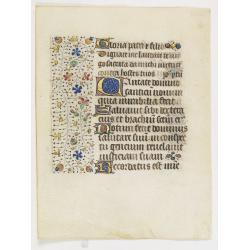 Gloria patri et filio
Dignare me laudare te uir
go sacrata da michi uirtutem
contra hostes tuos
Cantate domino
canticum nouum
quia mirabilia fecit
Saluauit sibi dextera
eius et brachium sanctum ei
Notum fecit dominus
salutare suum in conspectu
gencium reuelauit
iusticiam suam
Recordatus est mise